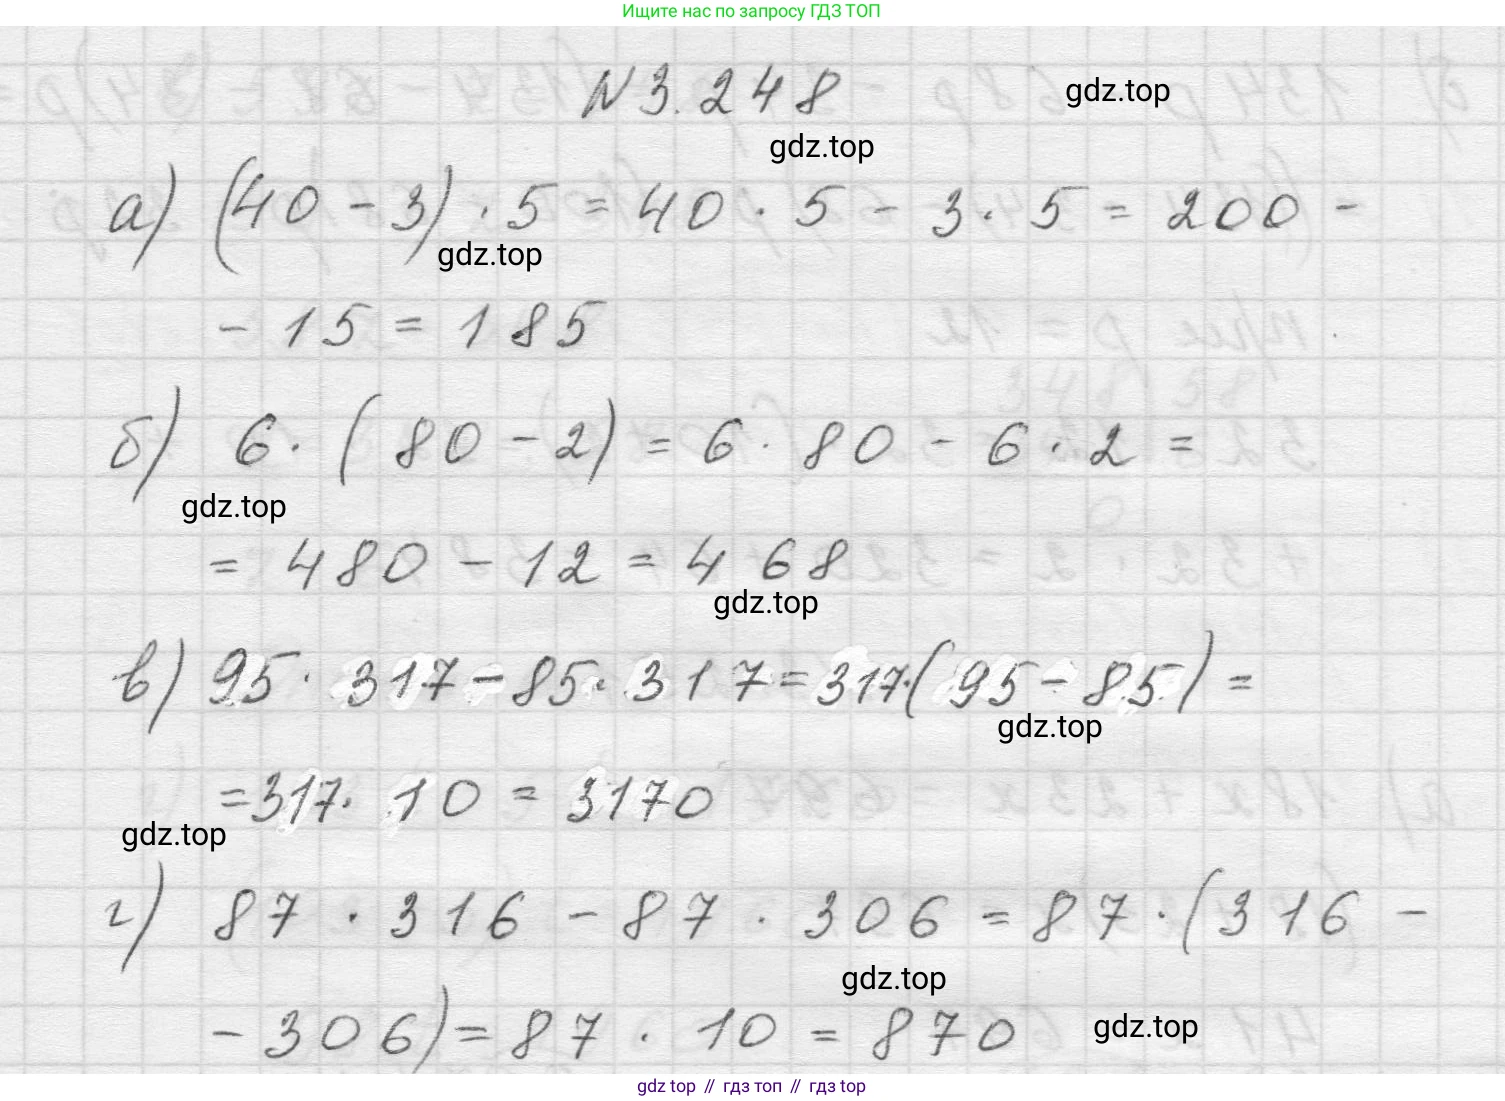 Ищите нас по запросу ГДЗ ТОП
N 3.248
gdz.top
gdz.top
а) (40 - 3) · 5 = 40 · 5 - 3 · 5 = 200 -
gdz.top
- 15 = 185
б) 6 · (80 - 2) = 6 · 80 - 6 · 2 =
gdz.top
= 480 - 12 = 468
gdz.top
в) 95 · 317 - 85 · 317 = 317 · (95 - 85) =
gdz.top
= 317 · 10 = 3170
gdz.top
г) 87 · 316 - 87 · 306 = 87 · (316 -
gdz.top
- 306) = 87 · 10 = 870
gdz.top
gdz top // гдз топ // гдз top